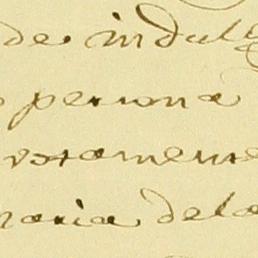 de indulg
persona
rosamente
maria dela